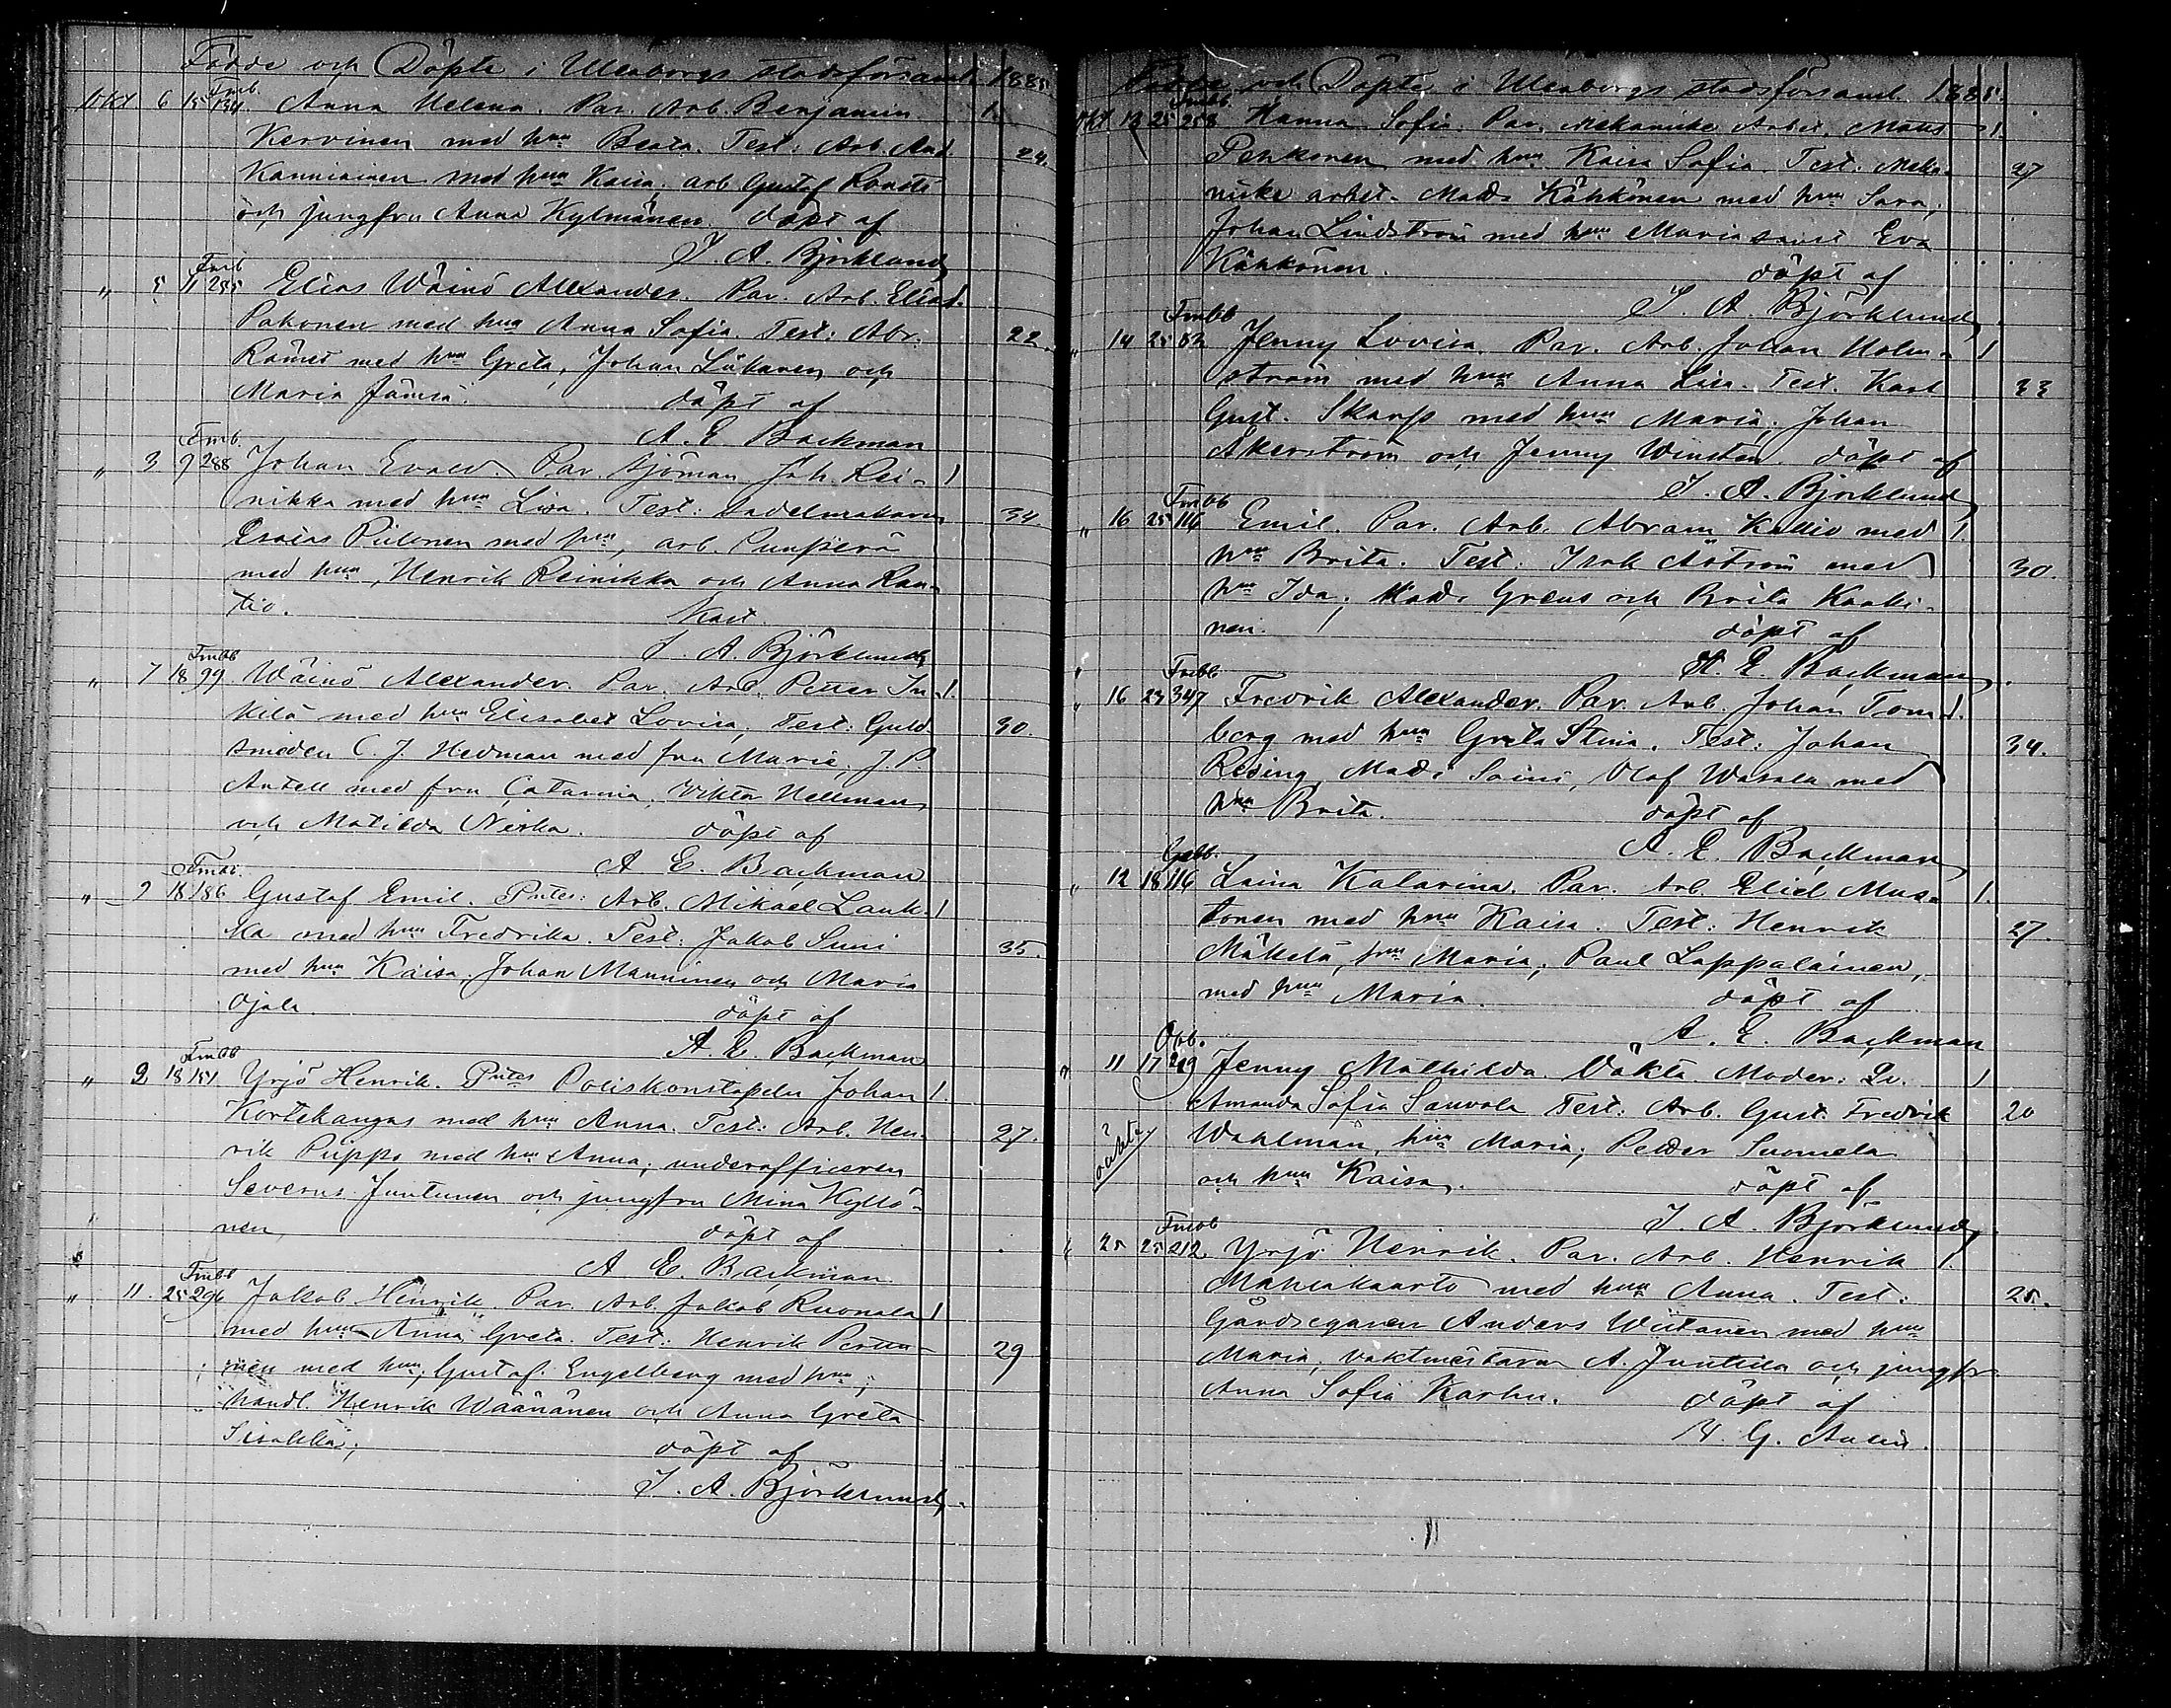 Födde och Döpte i Uleåborgs stadsförsaml. 1885.
Fmb.
Okt 6 15 134 Anna Helena. Par. Arb. Benjamin 1.
Kervinen med hu Beata. Test: Arb. And. 24.
Kanniainen med hu Kaisa; arb. Gustaf
och jungfru Anna Kylmänen. döpt af
J. A. Björklund
Fmb
" 5 11 285 Elias Wäinö Alexander. Par. Arb. Elias 1.
Pakonen med hu Anna Sofia. Test: Abr. 22.
Rämet med hu Greta, Johan och
Maria Jämsä. döpt af
A. E. Backman
Fmb.
" 3 9 288 Johan Evald. Par. sjöman Joh. Rei- 1
nikka med hu Lisa. Test: sadelmakaren 34
Esaias Piilonen med hu, arb.
med hu, Henrik Reinikka och Anna Ran-
tio.
J. A. Björklund
Fmbb
" 7 18 99 Wäinö Alexander. Par. Arb. Petter In- 1.
kilä med hu Elisabet Lovisa, Test: Guld- 30.
smeden C. J. Hedman med fru Maria, J. P.
Antell med fru Catarina, Viktor Hellman
och Matilda Niska. döpt af
A E. Backman
Fmbb.
" 2 18 186 Gustaf Emil. Arb. Mikael Lauk- 1
ka med hu Fredrika. Test: Jakob Suni 35.
med hu Kaisa, Johan Manninen och Maria
Ojala. döpt af
A. E. Backman
Fmbb
" 2 18 151 Yrjö Henrik. Poliskonstapeln Johan 1.
Kortekangas med hu Anna. Test: Arb. Hen- 27.
rik Puippo med hu Anna; underofficeren
Severus Juntunen och jungfru Mina Kyllö-
nen, döpt af
A E. Backman
Fmbb
" 11. 25 296 Jakob Henrik. Par. Arb. Jakob Ruonala 1
med hu Anna Greta. Test: Henrik Pertu- 29
nen med hu; Gustaf Engelberg med hu;
handl. Henrik Wäänänen och Anna Greta
döpt af
J. A. Björklund.
Födde och Döpte i Uleåborgs stadsförsaml. 1885.
Fmbb.
Okt 12 25 258 Hanna Sofia. Par. Mekaniske Arbet. Matts 1.
Penkonen med hu Kaisa Sofia. Test. Meka- 27
niske arbet. Matts Kähkönen med hu Sara;
Johan Lindström med hu Maria samt Eva
Kähkönen. döpt af
J. A. Björklund
Fmbb
" 14 25 82 Jenny Lovisa. Par. Arb. Johan Holm- 1
ström med hu Anna Lisa. Test. Karl 33
Gust. Skarp med hu Maria; Johan
Åkerström och Jenny Winsten. döpt af
J. A. Björklund
Fmbb
" 16 25 116 Emil. Par. Arb. Abram Kallio med 1.
hu Brita. Test: Isak Åström med 30.
hu Ida; Matts Greus och Brita Kaaki-
nen. döpt af
A. E. Backman
Fmbb
" 16 23 347 Fredrik Alexander. Par. Arb. Johan Torn- 1.
berg med hu Greta Stina. Test: Johan 34.
Reding, Matts Saini, Olof Wasala med
hu Brita. döpt af
A. E. Backman
Gabb.
" 12 18 116 Laina Katarina. Par. Arb. Eliel Mus- 1.
tonen med hu Kaisa. Test: Henrik 27.
Mäkelä, hu Maria; Paul Lappalainen,
med hu Maria. döpt af
A. E. Backman
Obb.
" 11 17 219 Jenny Mathilda. Oäkta. Moder: Qv. 1
Amanda Sofia Sauvola. Test: Arb. Gust. Fredrik 20
oäkta Wahlman, hu Maria; Petter Suomela
och hu Kaisa. döpt af
J. A. Björklund
Fmbb
" 25 25 212. Yrjö Henrik. Par. Arb. Henrik 1.
Mahlakaarto med hu Anna. Test: 25.
Gårdsegaren Anders Wiitanen med hu
Maria; vaktmästaren A. Junttila och jungfr.
Anna Sofia Karhu. döpt af